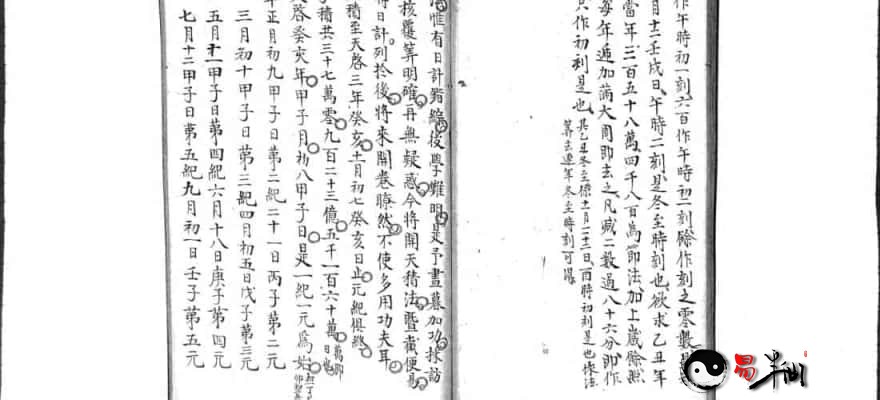 作午時初一刻六百作午時初二刻餘作刻之零數
月十二壬戌日午時二刻是冬至時刻也欲求乙丑年
當年三百五十八萬四千八百為節法加上歲餘然
每年遁加滿大周即去之凡減二數過八十六分即作
只作初刻是也
其乙丑冬至係十一月二十二日酉時初刻是也依法
算去連年冬至時刻可得
惟有日計猶纏後學難明是予晝暮加功採訪
核覆算明確再無疑惑今將開天積法暨載便易
將日計列於後將來開卷瞭然不使多用功夫耳
積至天啓三年癸亥十一月初七癸亥日止元紀俱終
積共三十七萬零九百二十三億五千一百六十萬
萬即日也
天啓癸亥年甲子月初八甲子日是一紀一元為始
年正月初九甲子日第二紀二十一日丙子第二元
三月初十甲子日第三紀四月初五日戊子第三元
五月十一甲子日第四紀六月十八日庚子第四元
七月十二甲子日第五紀九月初一日壬子第五元
易半仙